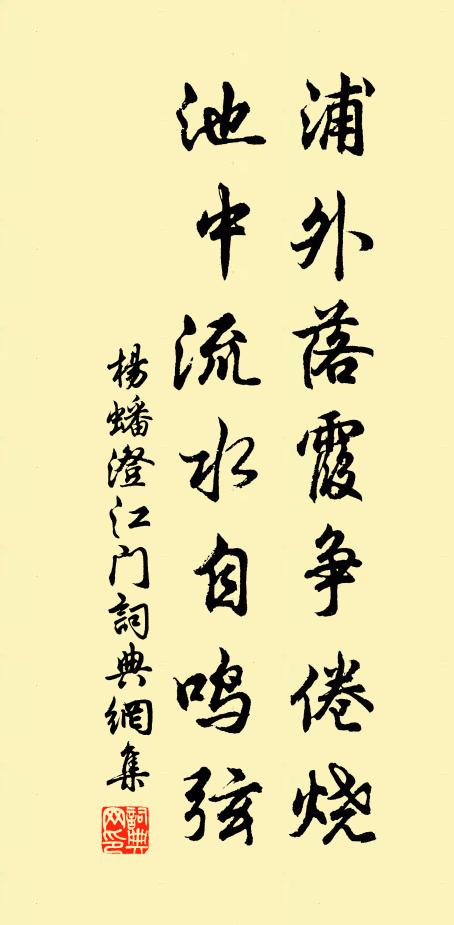 浦外落霞争倦烧
池中流水自鸣弦
楊蟠澄江门詞典網集
詞典网印